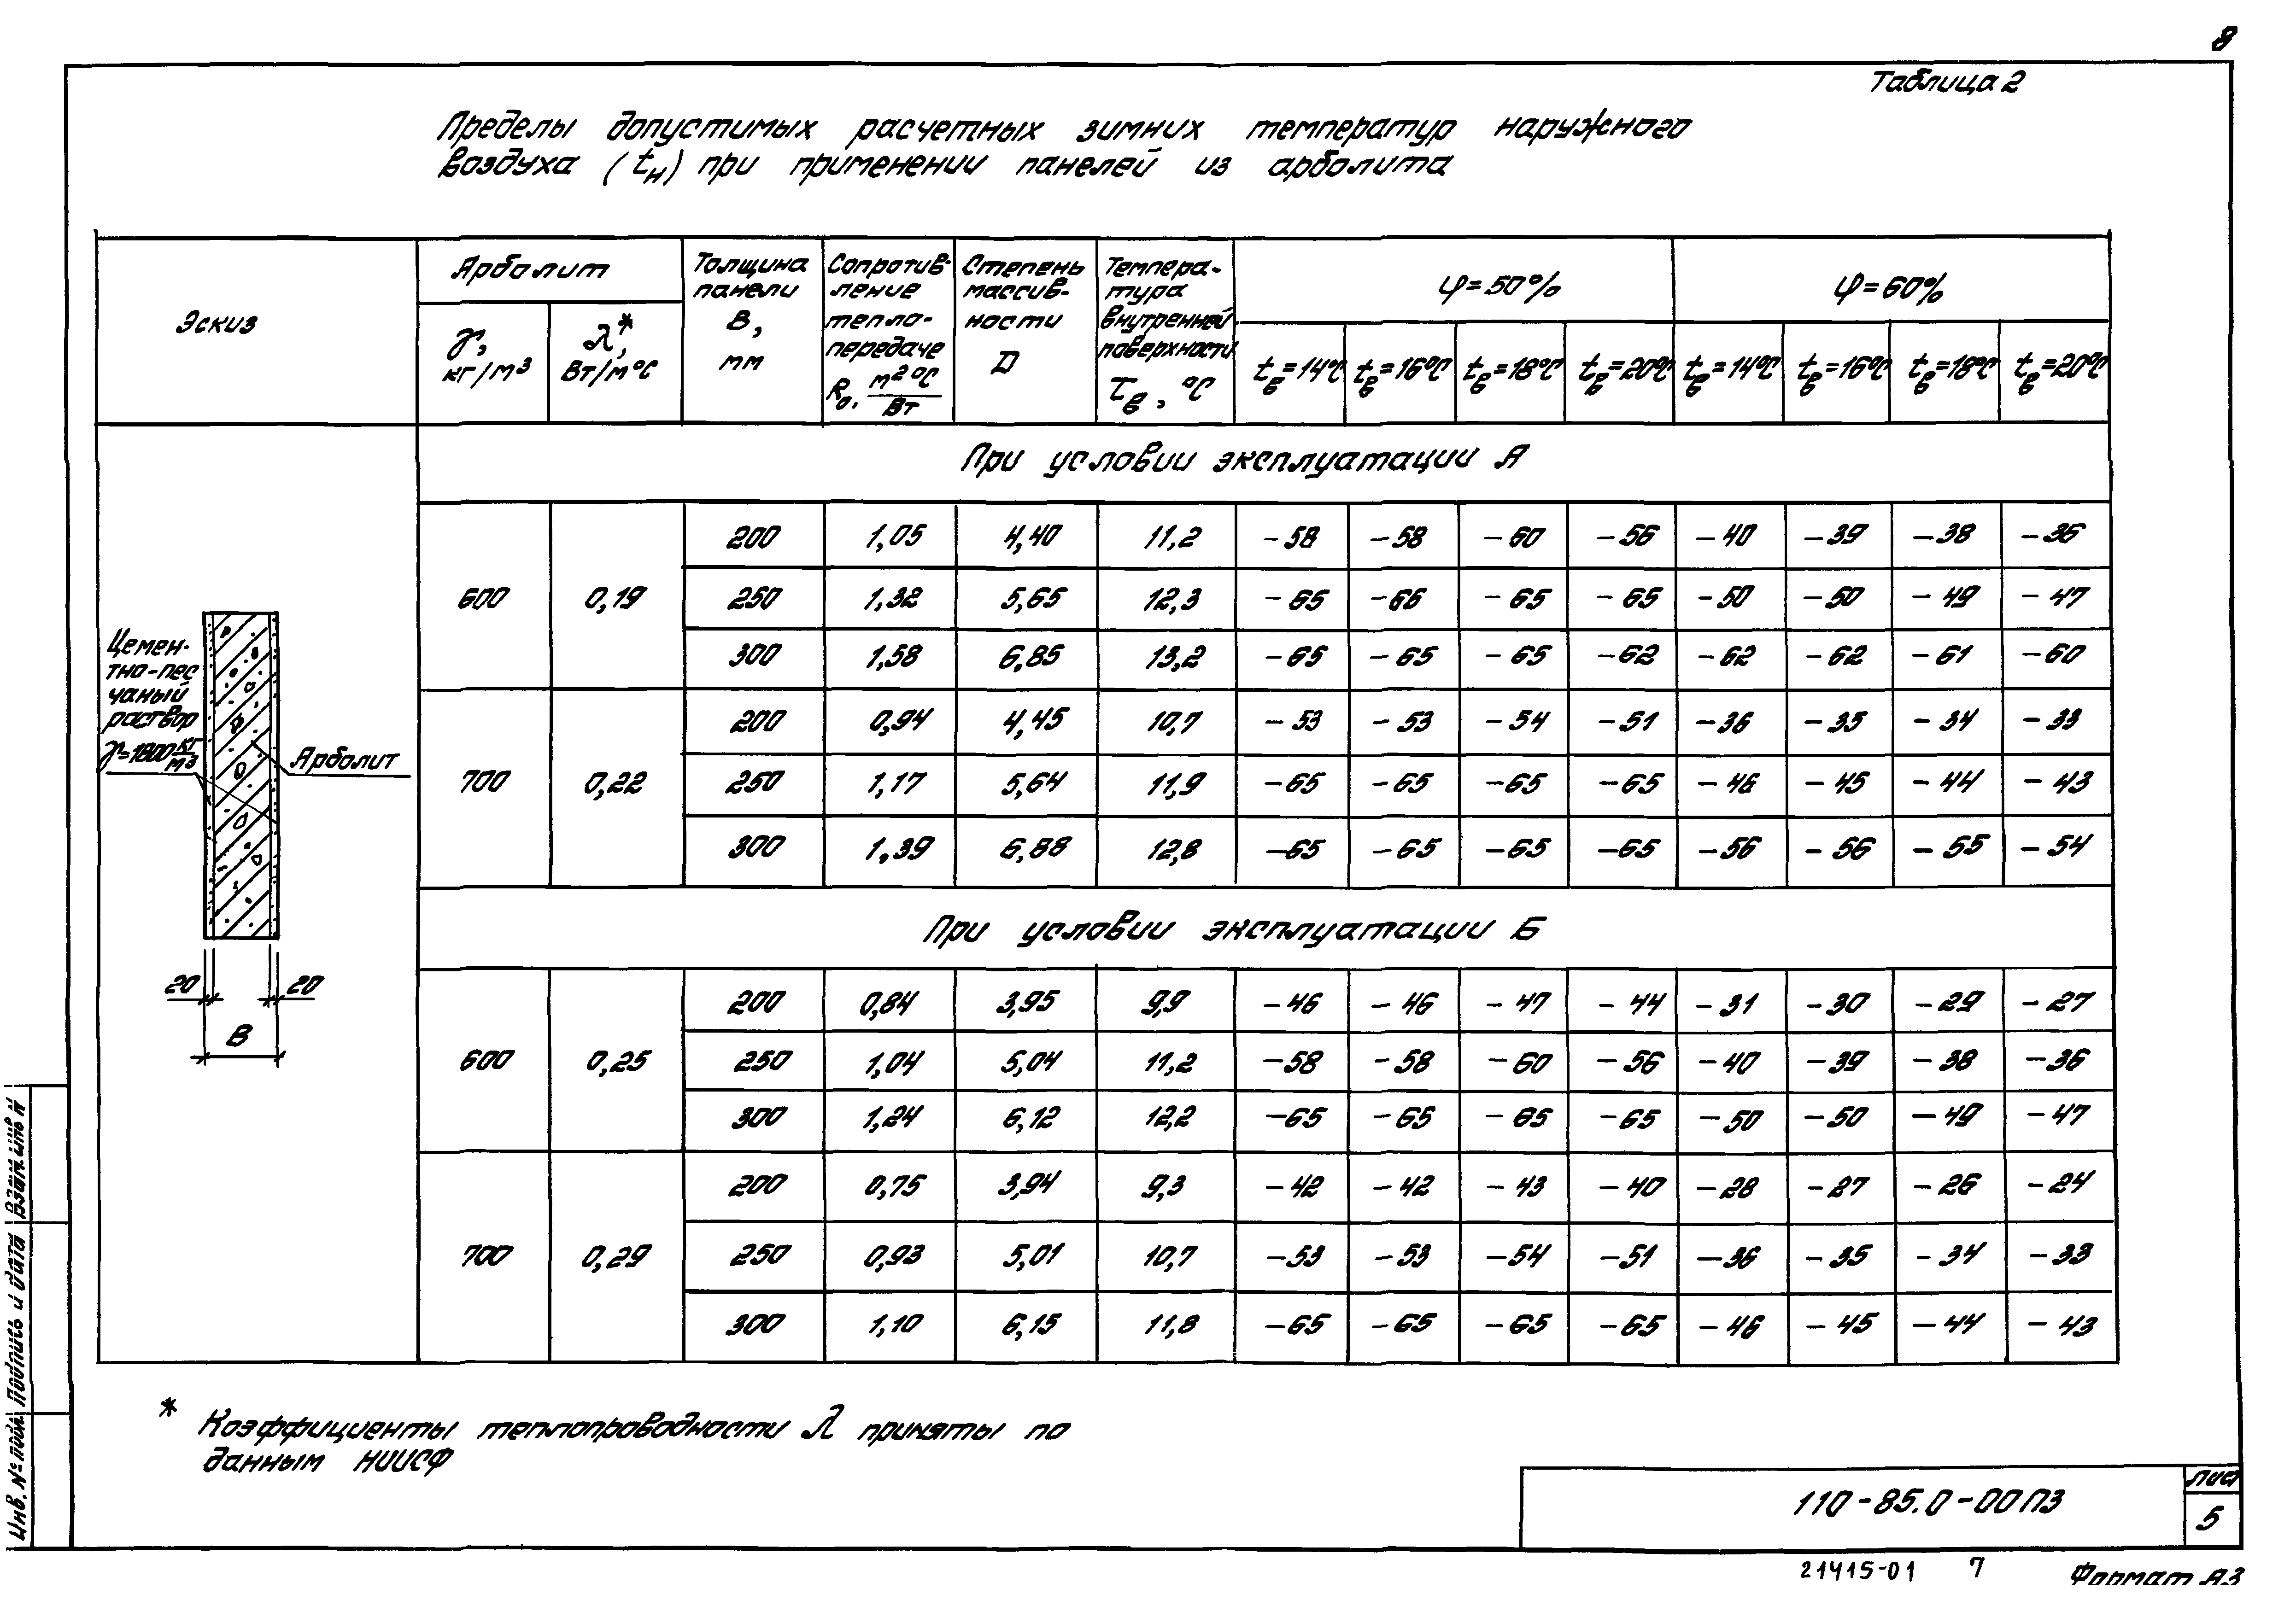 8
Таблица 2
Пределы допустимых расчетных зимних температур наружного
воздуха (tн) при применении панелей из арболита
Эскиз
Арболит
γ, кг/м³
λ*, Вт/м°С
Толщина панели В, мм
Сопротив-ление тепло-передаче Rо, м²°С/Вт
Степень массив-ности D
Темпера-тура внутренней поверхности τв, °С
φ=50% φ=60%
tв=14°С tв=16°С tв=18°С tв=20°С tв=14°С tв=16°С tв=18°С tв=20°С
При условии эксплуатации А
600 0,19
200 1,05 4,40 11,2 -58 -58 -60 -56 -40 -39 -38 -36
250 1,32 5,65 12,3 -65 -66 -65 -65 -50 -50 -49 -47
300 1,58 6,85 13,2 -65 -65 -65 -62 -62 -62 -61 -60
700 0,22
200 0,94 4,45 10,7 -53 -53 -54 -51 -36 -35 -34 -33
250 1,17 5,64 11,9 -65 -65 -65 -65 -46 -45 -44 -43
300 1,39 6,88 12,8 -65 -65 -65 -65 -56 -56 -55 -54
При условии эксплуатации Б
600 0,25
200 0,84 3,95 9,9 -46 -46 -47 -44 -31 -30 -29 -27
250 1,04 5,04 11,2 -58 -58 -60 -56 -40 -39 -38 -36
300 1,24 6,12 12,2 -65 -65 -65 -65 -50 -50 -49 -47
700 0,29
200 0,75 3,94 9,3 -42 -42 -43 -40 -28 -27 -26 -24
250 0,93 5,01 10,7 -53 -53 -54 -51 -36 -35 -34 -33
300 1,10 6,15 11,8 -65 -65 -65 -65 -46 -45 -44 -43
Цемен-
тно-пес
чаный
раствор
γ=1800 кг/м³
Арболит
20 20
В
* Коэффициенты теплопроводности λ приняты по
данным НИИСФ
110-85.0-00ПЗ
Лист
5
21415-01 7
Формат А3
Инв. № подл. Подпись и дата Взам. инв №